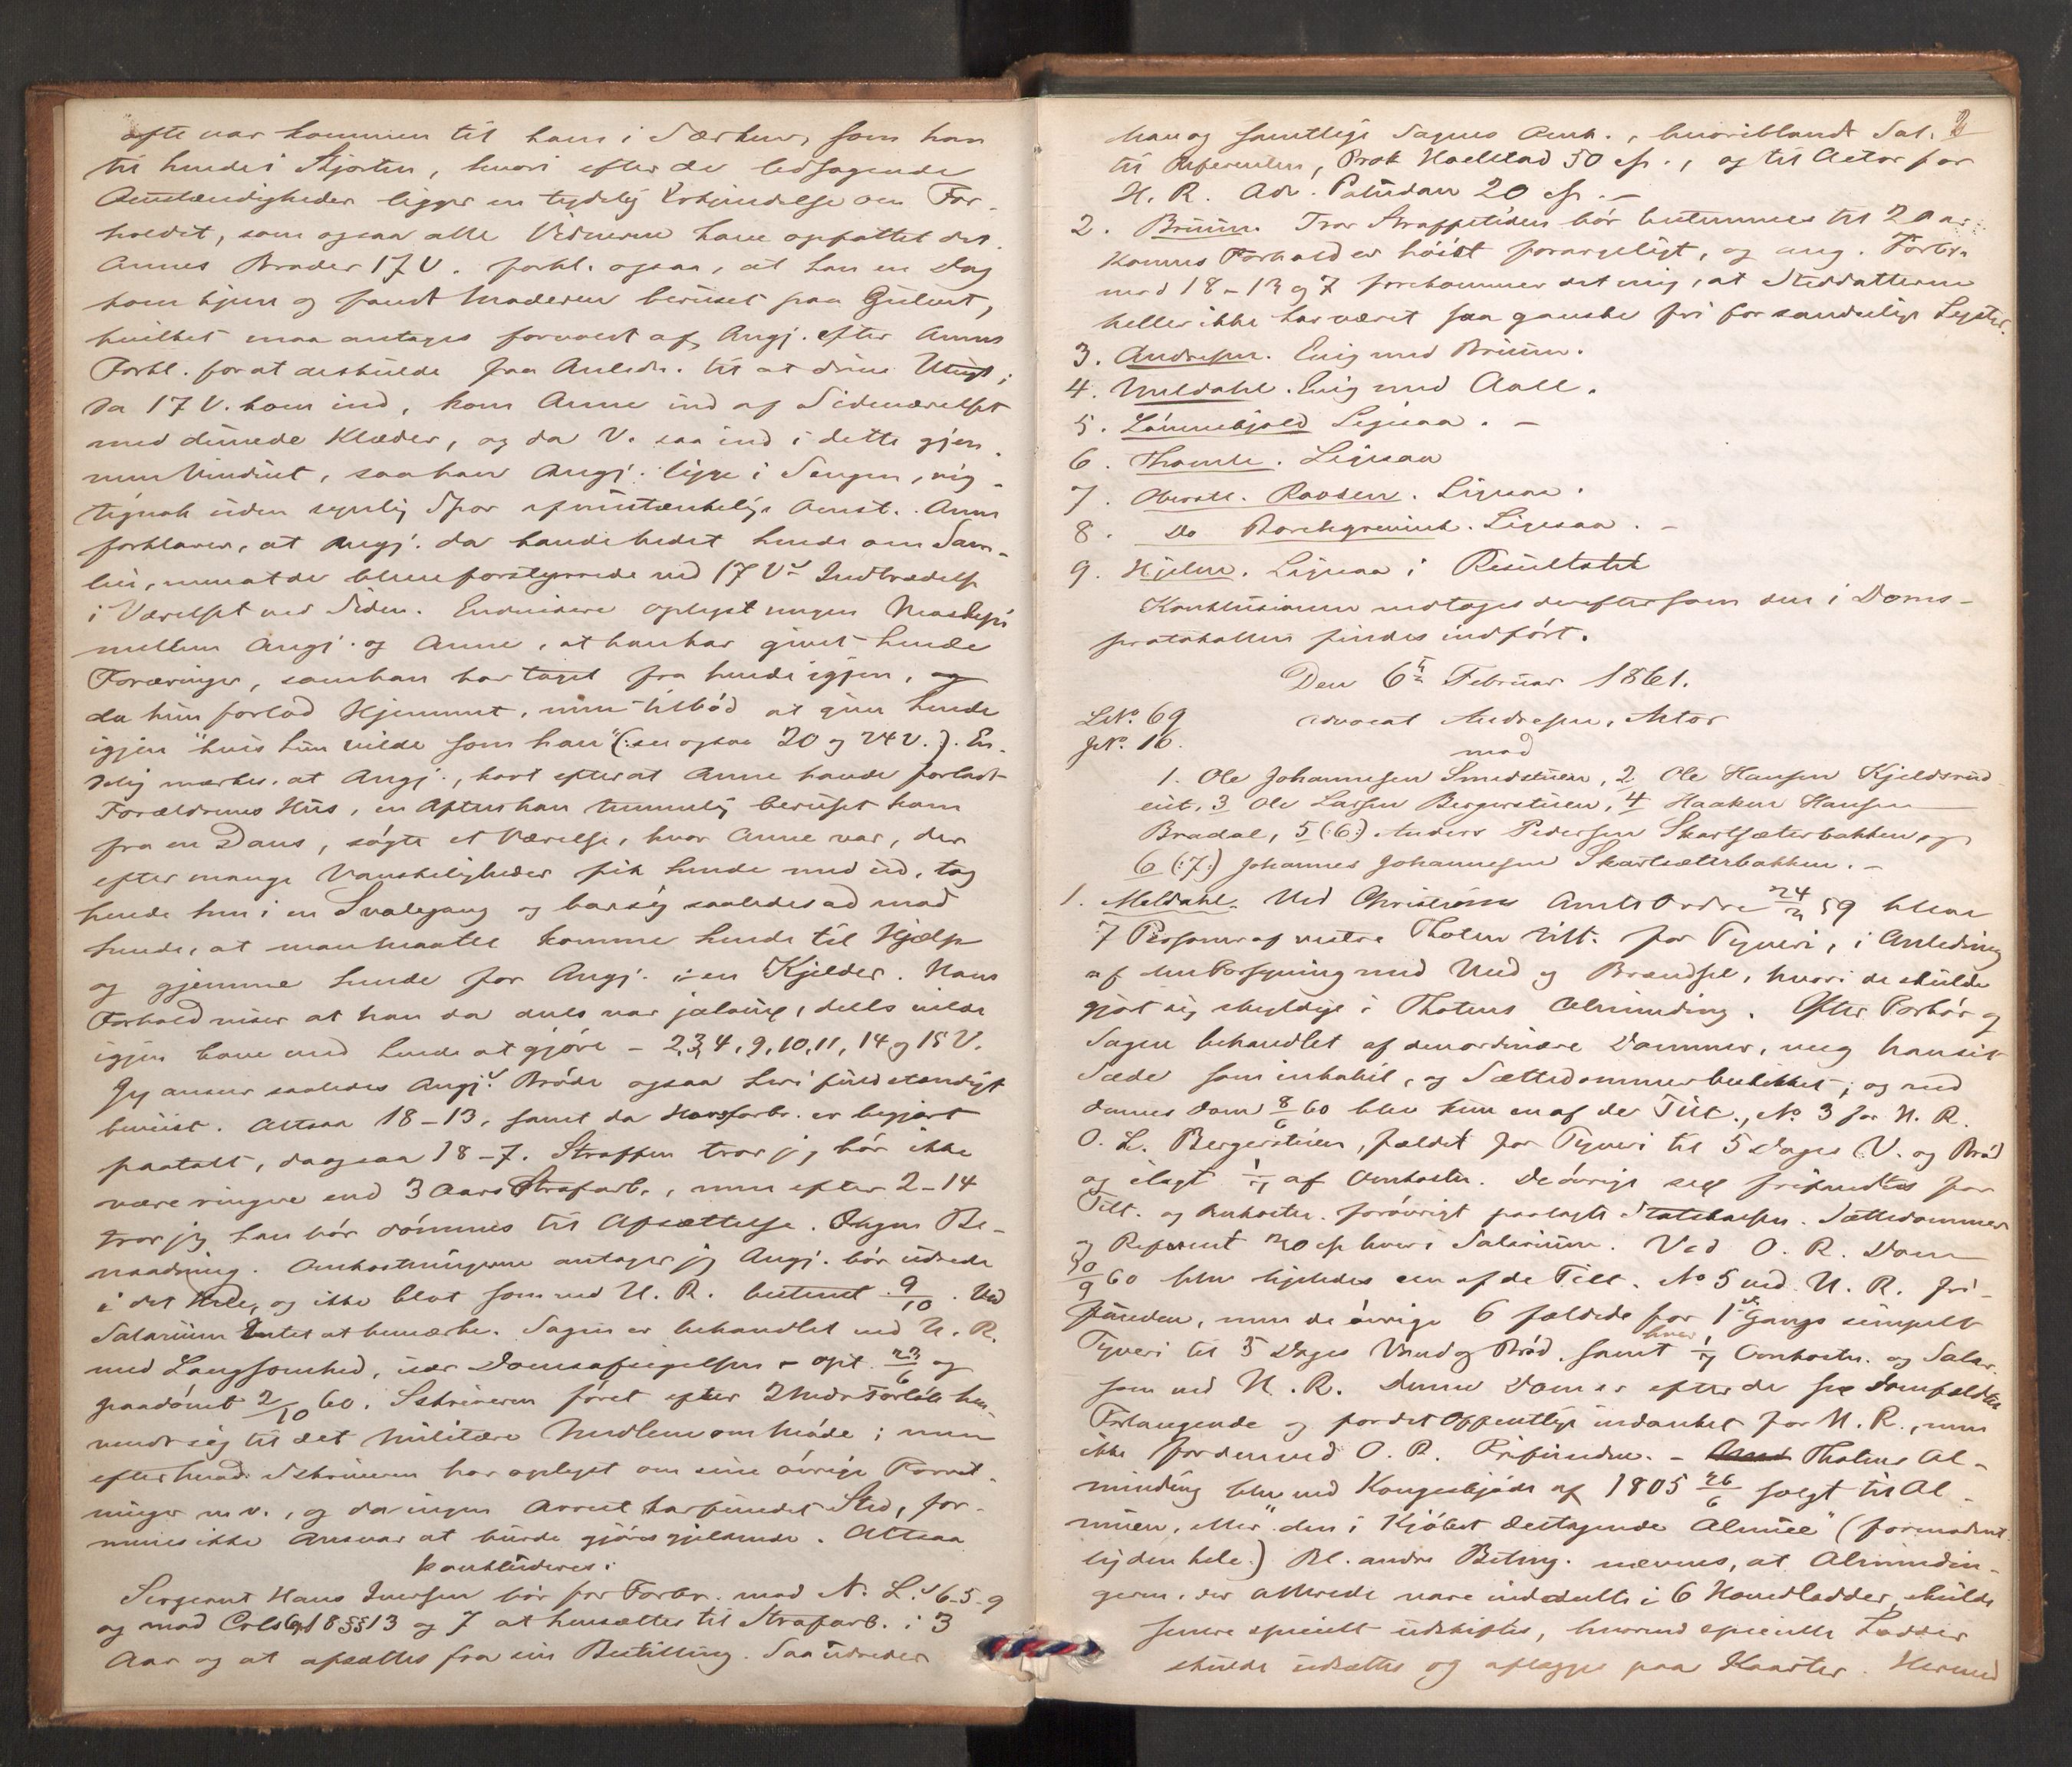 ofte var kommen til ham i Særken, som han
til hende i Skjorten, hvori efter de ledsagende
Omstændigheder ligger en tydelig Erkjendelse om For-
holdet, som ogsaa alle Vidnerne have opfattet det.
Annes Broder 17 V. forkl. ogsaa, at han en Dag
kom hjem og fandt Moderen beruset paa Gulvet,
hvilket maa antages forvoldt af Angj. efter Annes
Forkl. for at afskilde fra Anledn. til at drive Utugt;
da 17 V. kom ind, kom Anne ind af Sideværelset
med Klæder, og da V. saa ind i dette gjen-
nem Vinduet, saa han Angj. ligge i Sengen, rig-
tignok uden synlig Spor af mistænkelige Omst. Anne
forklarer, at Angj. da havde bedet hende om Sam-
leie, men at de bleve forstyrrede ved 17 Vs Indtrædelse
i Værelset ved Siden. Endvidere oplyst nogen
mellem Angj. og Anne, at han har givet hende
Foræringer, som han har taget fra hende igjen, og
da hun forlod Hjemmet, men tilbød at give hende
igjen "hvis hun vilde som han" (: see ogsaa 20 og 24 V.). En-
delig mærkes, at Angj., kort efter at Anne havde forladt
Forældrenes Hus, en Aften han temmelig beruset kom
fra en Dans, søgte et Værelse, hvor Anne var, der
efter mange Vanskeligheder fik hende med ud, tog
hende hen i en Svalegang og bar sig saaledes ad mod
hende, at man maatte komme hende til Hjælp
og gjemme hende for Angj. i en Kjelder. Hans
Forhold viser at han da dels var jaloux, dels vilde
igjen have med hende at gjøre – 2, 3, 4, 9, 10, 11, 14 og 15 V.
Jeg anser saaledes Angjs Brøde ogsaa heri fuldstændigt
beviist. Altsaa 18–13, samt da Horsforbr. er begjært
paatalt, da ogsaa 18–7. Straffen tror jeg bør ikke
være ringere end 3 Aars Strafarb., men efter 2–14
tror jeg han bør dømmes til Afsættelse. Ingen Be-
naadning. Omkostningerne antager jeg Angj. bør udrede
i det Hele, og ikke blot som ved U. R. bestemt 9/10. Ved
Salarium Intet at bemærke. Sagen er behandlet ved U. R.
med Langsomhed, især Domsafsigelsen – opt. 23/6 og
paadømt 2/10 60. Skriveren først efter Forløb hen-
vendt sig til det militære Medlem om Møde; men
efter hvad Skriveren har oplyst om sine øvrige Forret-
ninger m. v., og da ingen Arrest har fundet Sted, for-
menes ikke Ansvar at burde gjøres gjeldende. Altsaa
konkluderes:
Sergeant Hans Iversen bør for Forbr. mod N. L.s 6–5–9
og mod Crls 18 §§ 13 og 7 at hensættes til Strafarb. i 3
Aar og at afsættes fra sin Bestilling. Saa udreder
2
han og samtlige Sagens Omk., hvoriblandt Sal.
til Referenten, Prok 50 sp., og til Actor for
H. R. Adv. Paludan 20 sp. –
2. Bruun. Tror Straffetiden bør bestemmes til 2 Aar;
Kones Forhold er høist forargeligt, og ang. Forbr.
mod 18–13 og 7 forekommer det mig, at Steddatteren
heller ikke har været saa ganske fri for sandselige Lyster.
3. Andresen. Enig med Bruun.
4. Meldahl. Enig med Aall.
5. Løvenskjold Ligesaa. –
6. Thomle. Ligesaa
7. Oberstl. Ligesaa.
8. Do Borchgrevink. Ligesaa. –
9. Hjelm. Ligesaa i Resultatet
Konklusionen vedtages derefter som den i Doms-
protokollen findes indført.
Den 6te Februar 1861.
LNo. 69 Advocat Andresen, Actor
JNo. 16. mod
1. Ole Johannesen Smedstuen, 2 Ole Hansen Kjeldsrud-
eiet, 3 Ole Larsen Bergerstuen, 4 Haaken Hansen
Bradal, 5 (:6:) Anders Pedersen Skartsæterbakken og
6 (:7:) Johannes Johannesen Skartsæterbakken. –
1. Meldahl. Ved Christians Amts Ordre 24/2 59 bleve
7 Personer af vestre Thoten tilt. for Tyveri, i Anledning
af Forsyning med Ved og Brændsel, hvori de skulde
gjort sig skyldige i Thotens Alminding. Efter Forhør og
Sagen behandlet af den ordinære Dommer, veg han sit
Sæde som inhabil, og Sættedommer beskikket; og ved
dennes Dom 8/6 60 blev kun en af de Tilt., No. 3 for H. R.
O. L. Bergerstuen, fældet for Tyveri til 5 Dages V. og Brød
og ilagt 1/7 af Omkostn. De øvrige sex frifandtes for
Tilt. og Omkostn. forøvrigt paalagte Statskassen. Sættedommer
og Referent 20 sp hver i Salarium. Ved O. R. Dom
10/9 60 blev ligeledes een af de Tilt. No 5 ved U. R. fri-
funden, men de øvrige 6 fældede for 1ste Gangs simpelt
Tyveri til 5 Dages Vand og Brød, samt hver 1/7 Omkostn. og Salar.
som ved U. R. Denne Dom er efter de sex Domfældtes
Forlangende og for det Offentlige indanket for H. R., men
ikke for den ved O. R. Frifundne. – Thotens Al-
minding blev ved Kongeskjøde af 1805 26/6 solgt til Al-
muen, eller "den i Kjøbet deeltagende Almue" (formodent-
lig den hele.) Bl. andre Beting. nævnes, at Almindin-
gerne, der allerede vare inddeelte i 6 Hovedlodder, skulde
senere specielt udskiftes, hvorved specielle Lodder
skulde udsættes og aflægges paa Kaarter. Hermed